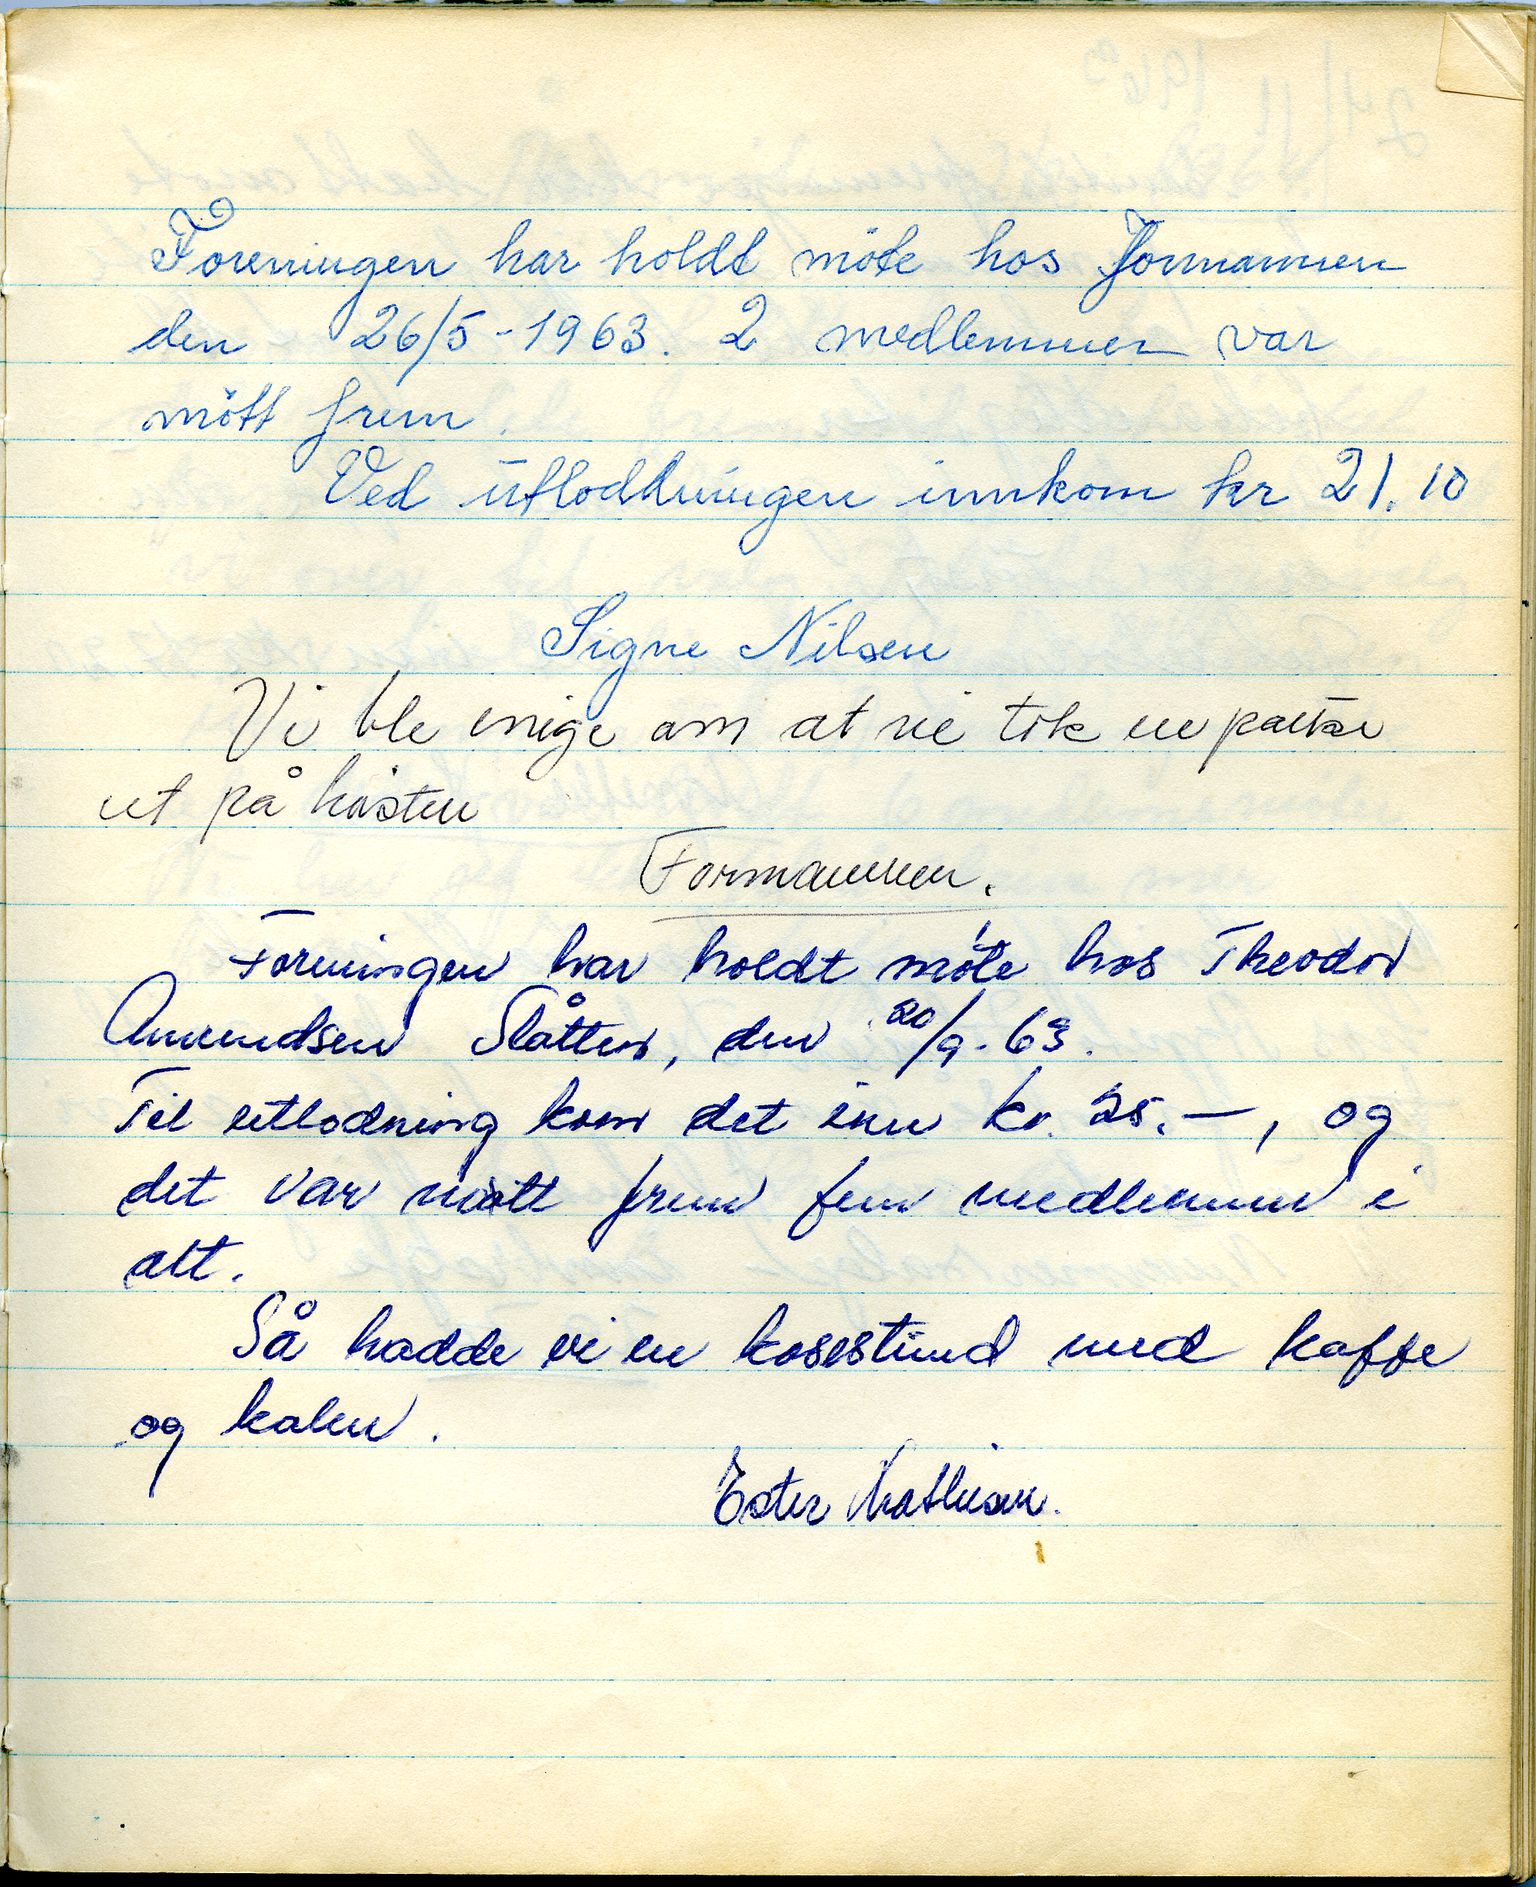 Foreningen har holdt möte hos Formannen
den 26/5-1963. 2 medlemmer var
mött frem.
Ved utloddningen innkom kr 21.10
Signe Nilsen
Vi ble enige om at vi tok en pause
ut på hösten
Formannen.
Foreningen har holdt möte hos Theodor
Amundsen Slåtten, den 20/9-63.
Til utlodning kom det inn kr. 25.-, og
det var mött frem fem medlemmer i
alt.
Så hadde vi en kosestund med kaffe
og kaker.
Ester Mathisen.